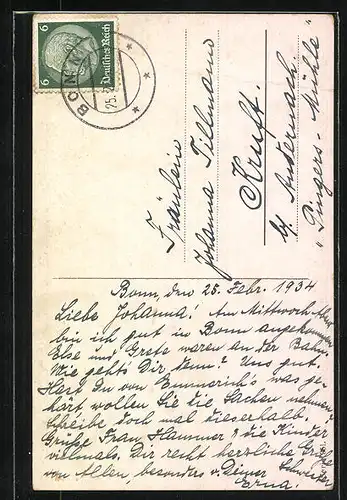 6 Deutsches Reich 6
BONN
25.2
Fräulein
Johanna Tillmann
Kruft.
b/ Andernach
"Pingers-Mühle"
Bonn, den 25. Febr. 1934
Liebe Johanna! Am Mittwoch Abend
bin ich gut in Bonn angekommen
Else und Grete waren an der Bahn.
Wie geht's Dir denn? Uns gut,
Hast Du von Emmerich's was ge-
hört wollen Sie die Sachen nehmen
Scheibe doch mal dieserhalb.
Grüße Frau Hammer & die Kinder
vielmals. Dir recht herzliche Grüße
von Allen, besonders v. Deiner Schwester
Erna!